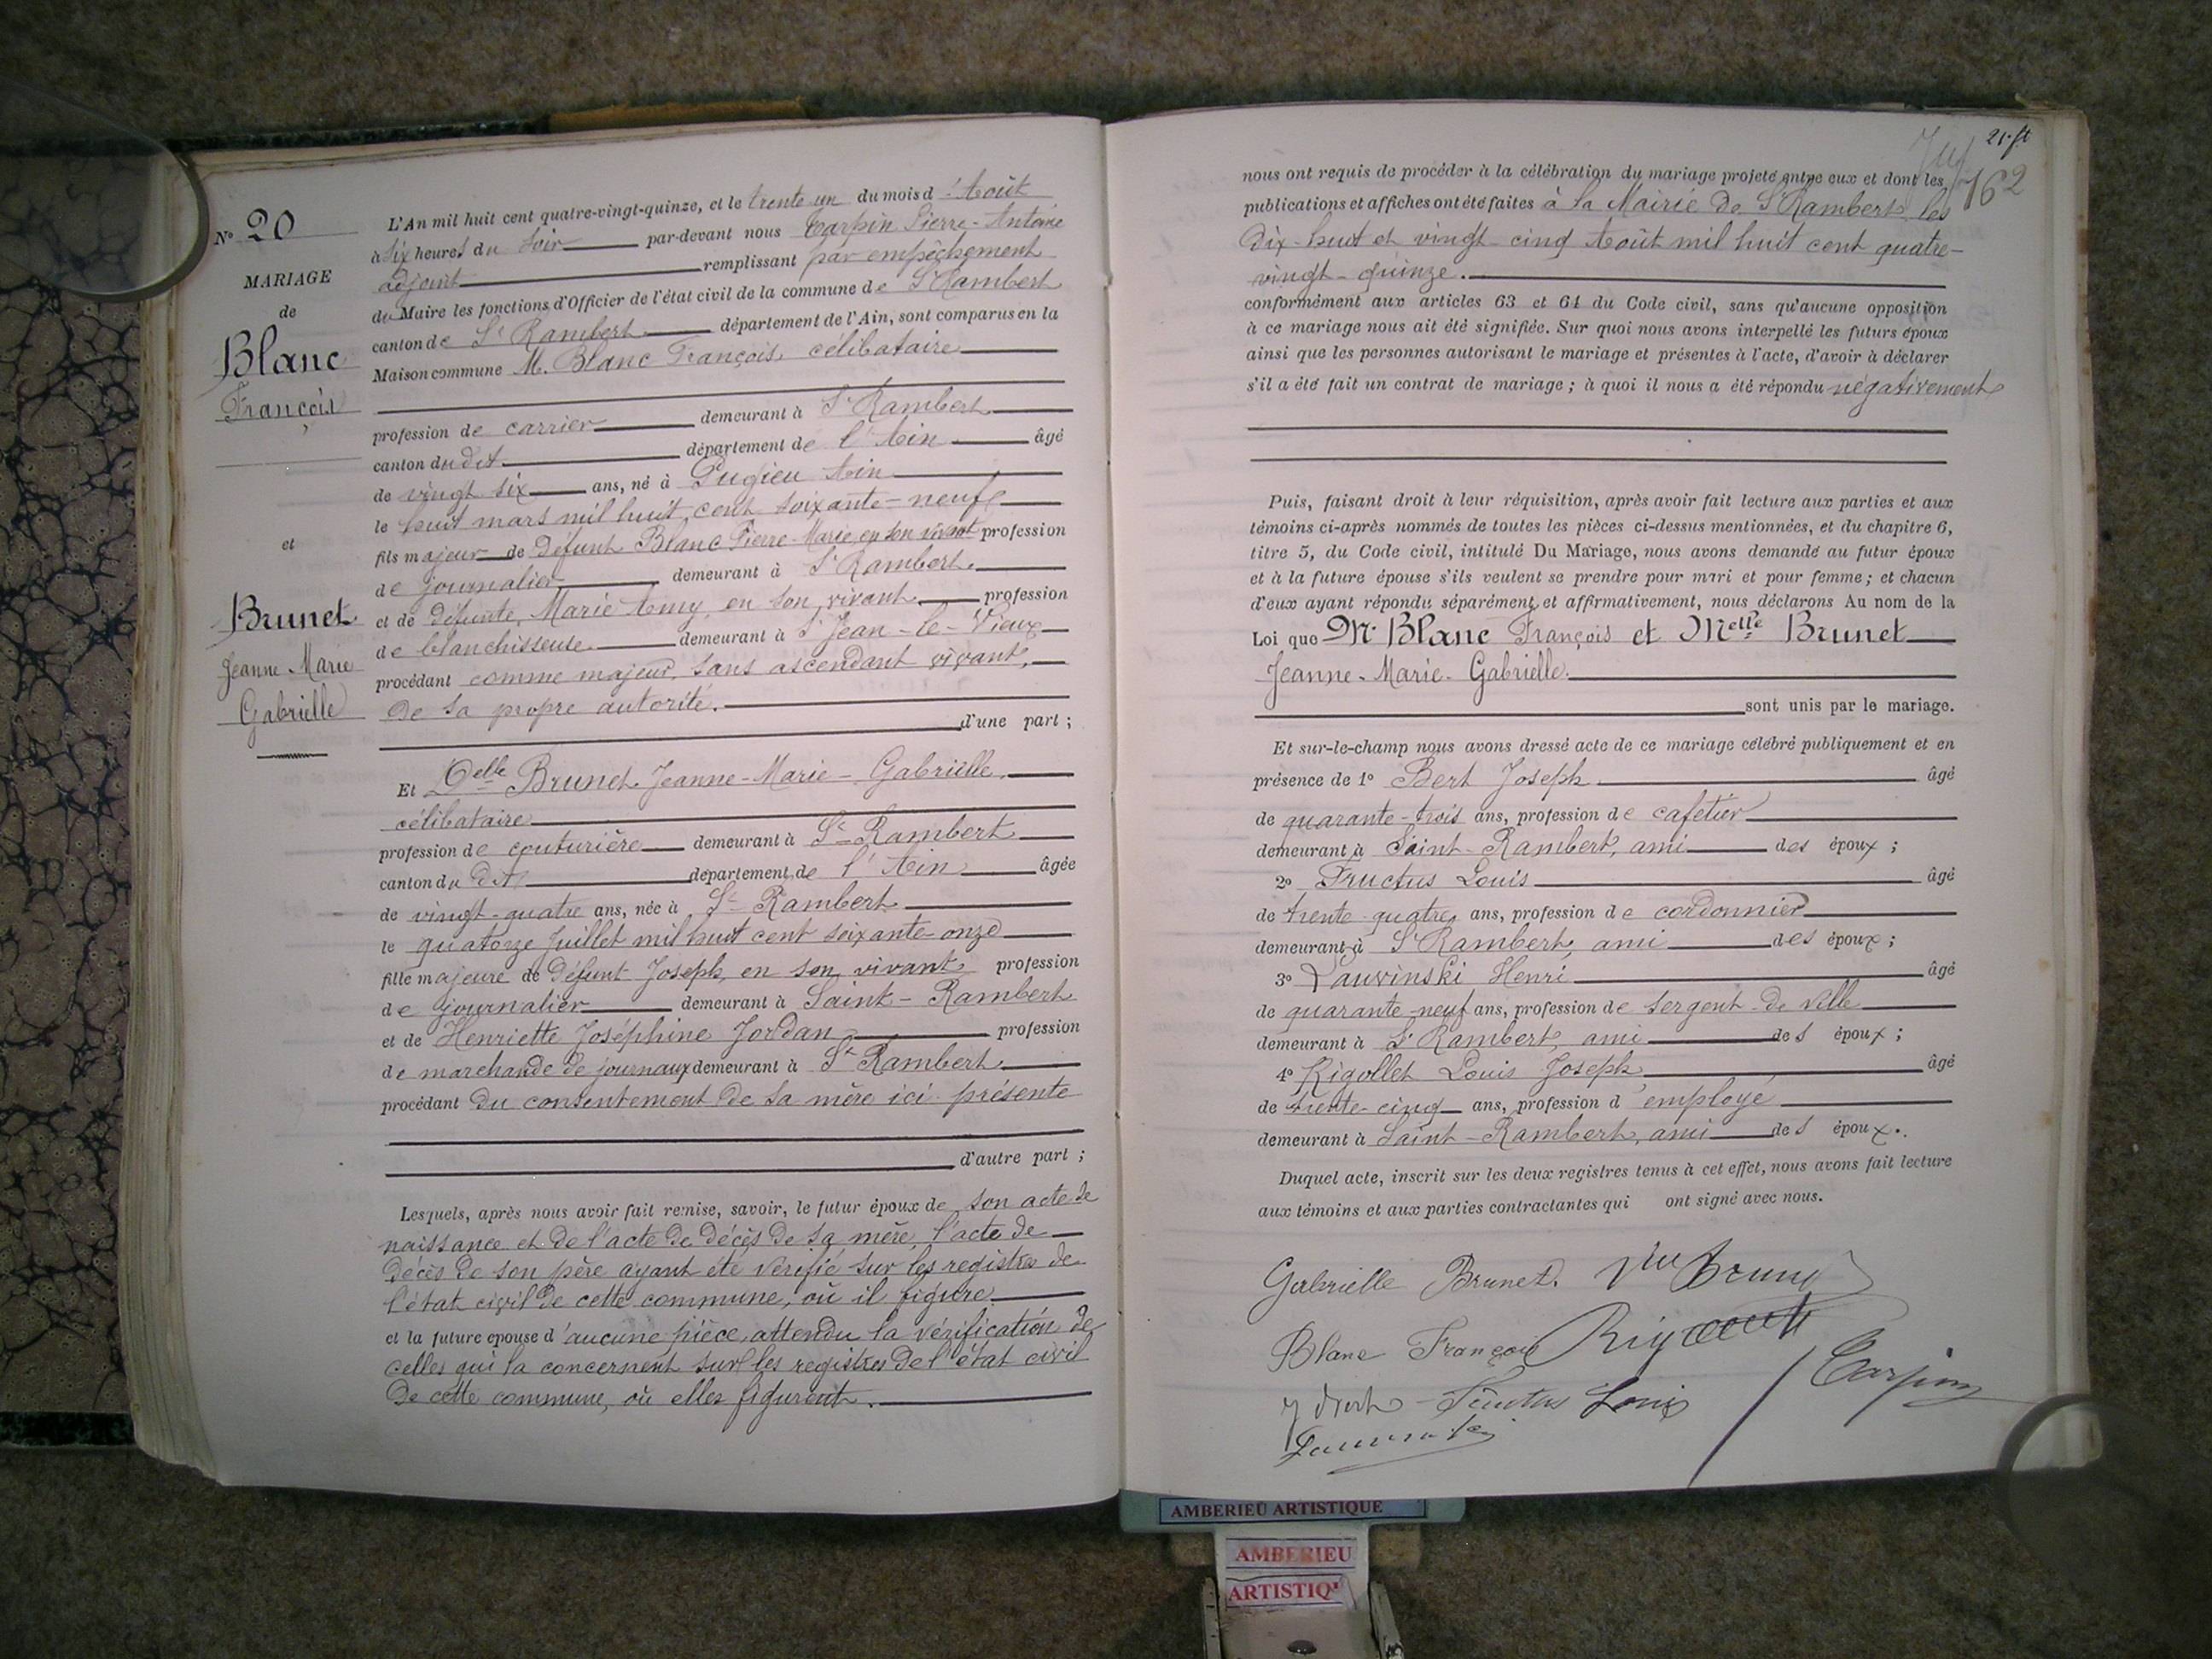 N° 20
MARIAGE
de
Blanc
François
et
Brunet
Jeanne Marie
Gabrielle
L'An mil huit cent quatre-vingt-quinze, et le trente un du mois d'Août
à six heures du soir par-devant nous Tarpin Pierre-Antoine
adjoint remplissant par empêchement
du Maire les fonctions d'Officier de l'état civil de la commune de St Rambert
canton de St Rambert département de l'Ain, sont comparus en la
Maison commune M. Blanc François, célibataire
profession de carrier demeurant à St Rambert
canton du dit département de l'Ain âgé
de vingt six ans, né à Pugieu Ain
le huit mars mil huit cent soixante-neuf
fils majeur de défunt Blanc Pierre-Marie en son vivant profession
de journalier demeurant à St Rambert.
et de défunte, Marie Amy, en son vivant profession
de blanchisseuse demeurant à St Jean-le-Vieux
procédant comme majeur, sans ascendant vivant,
de sa propre autorité.
d'une part ;
Et Delle Brunet Jeanne-Marie-Gabrielle,
célibataire
profession de couturière demeurant à St Rambert
canton du dit département de l'Ain âgée
de vingt-quatre ans, née à St Rambert
le quatorze Juillet mil huit cent soixante-onze
fille majeure de défunt Joseph, en son vivant profession
de journalier demeurant à Saint-Rambert
et de Henriette Joséphine Jordan profession
de marchande de journaux demeurant à St Rambert
procédant du consentement de sa mère ici présente
d'autre part ;
Lesquels, après nous avoir fait remise, savoir, le futur époux de son acte de
naissance et de l'acte de décès de sa mère, l'acte de
décès de son père ayant été vérifié sur les registres de
l'état civil de cette commune, où il figure.
et la future epouse d'aucune pièce, attendu la vérification de
celles qui la concernent sur les registres de l'état civil
de cette commune, où elles figurent.
21.
762
nous ont requis de procéder à la célébration du mariage projeté entre eux et dont les
publications et affiches ont été faites à la Mairie de St Rambert les
dix-huit et vingt-cinq Août mil huit cent quatre-
vingt-quinze.
conformément aux articles 63 et 64 du Code civil, sans qu'aucune opposition
à ce mariage nous ait été signifiée. Sur quoi nous avons interpellé les futurs époux
ainsi que les personnes autorisant le mariage et présentes à l'acte, d'avoir à déclarer
s'il a été fait un contrat de mariage ; à quoi il nous a été répondu négativement
Puis, faisant droit à leur réquisition, après avoir fait lecture aux parties et aux
témoins ci-après nommés de toutes les pièces ci-dessus mentionnées, et du chapitre 6,
titre 5, du Code civil, intitulé Du Mariage, nous avons demandé au futur époux
et à la future épouse s'ils veulent se prendre pour mari et pour femme ; et chacun
d'eux ayant répondu séparément et affirmativement, nous déclarons Au nom de la
Loi que Mr Blanc François et Melle Brunet
Jeanne-Marie-Gabrielle.
sont unis par le mariage.
Et sur-le-champ nous avons dressé acte de ce mariage célébré publiquement et en
présence de 1° Bert Joseph âgé
de quarante-trois ans, profession de cafetier
demeurant à Saint-Rambert, ami des époux ;
2° Fructus Louis âgé
de trente-quatre ans, profession de cordonnier
demeurant à St Rambert, ami des époux ;
3° Lauvinski Henri âgé
de quarante-neuf ans, profession de sergent de ville
demeurant à St Rambert, ami des époux ;
4° Rigollet Louis Joseph âgé
de trente-cinq ans, profession d'employé
demeurant à Saint-Rambert, ami des époux.
Duquel acte, inscrit sur les deux registres tenus à cet effet, nous avons fait lecture
aux témoins et aux parties contractantes qui ont signé avec nous.
Gabrielle Brunet. Vve Brunet
Blanc François
J Bert Fructus Louis Tarpin
AMBERIEU ARTISTIQUE
AMBERIEU
ARTISTIQ